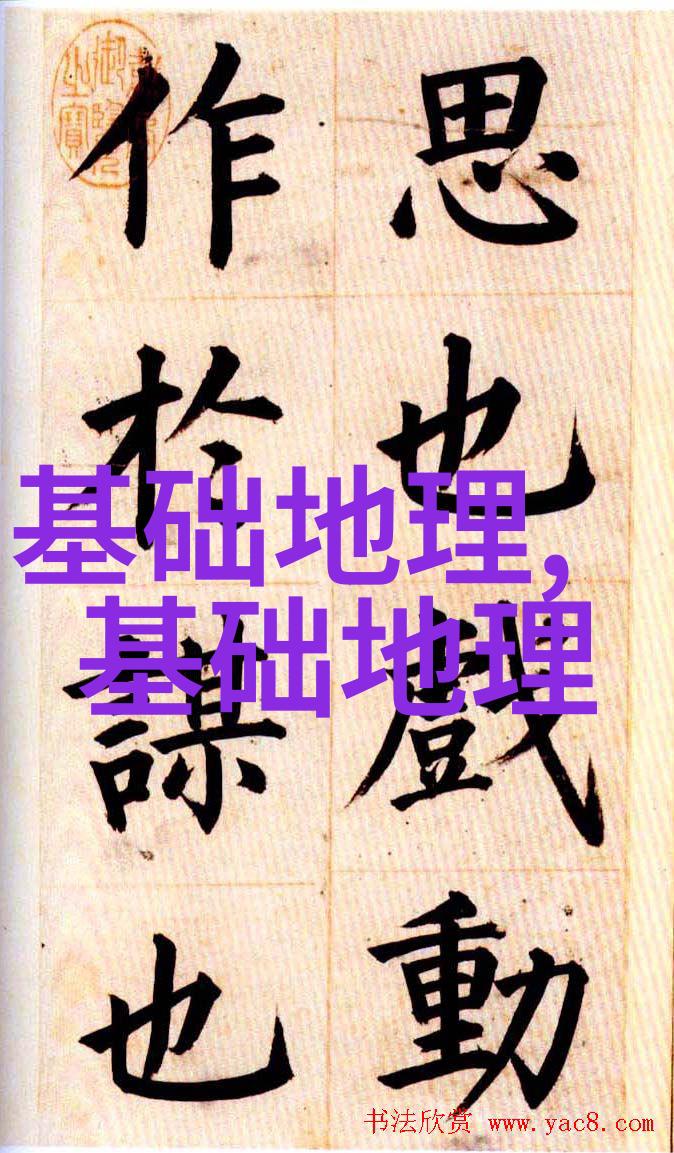 思也戲動
作於謀也
御覽
之寶
基础地理,
基础地理
书法欣赏 www.yac8.com